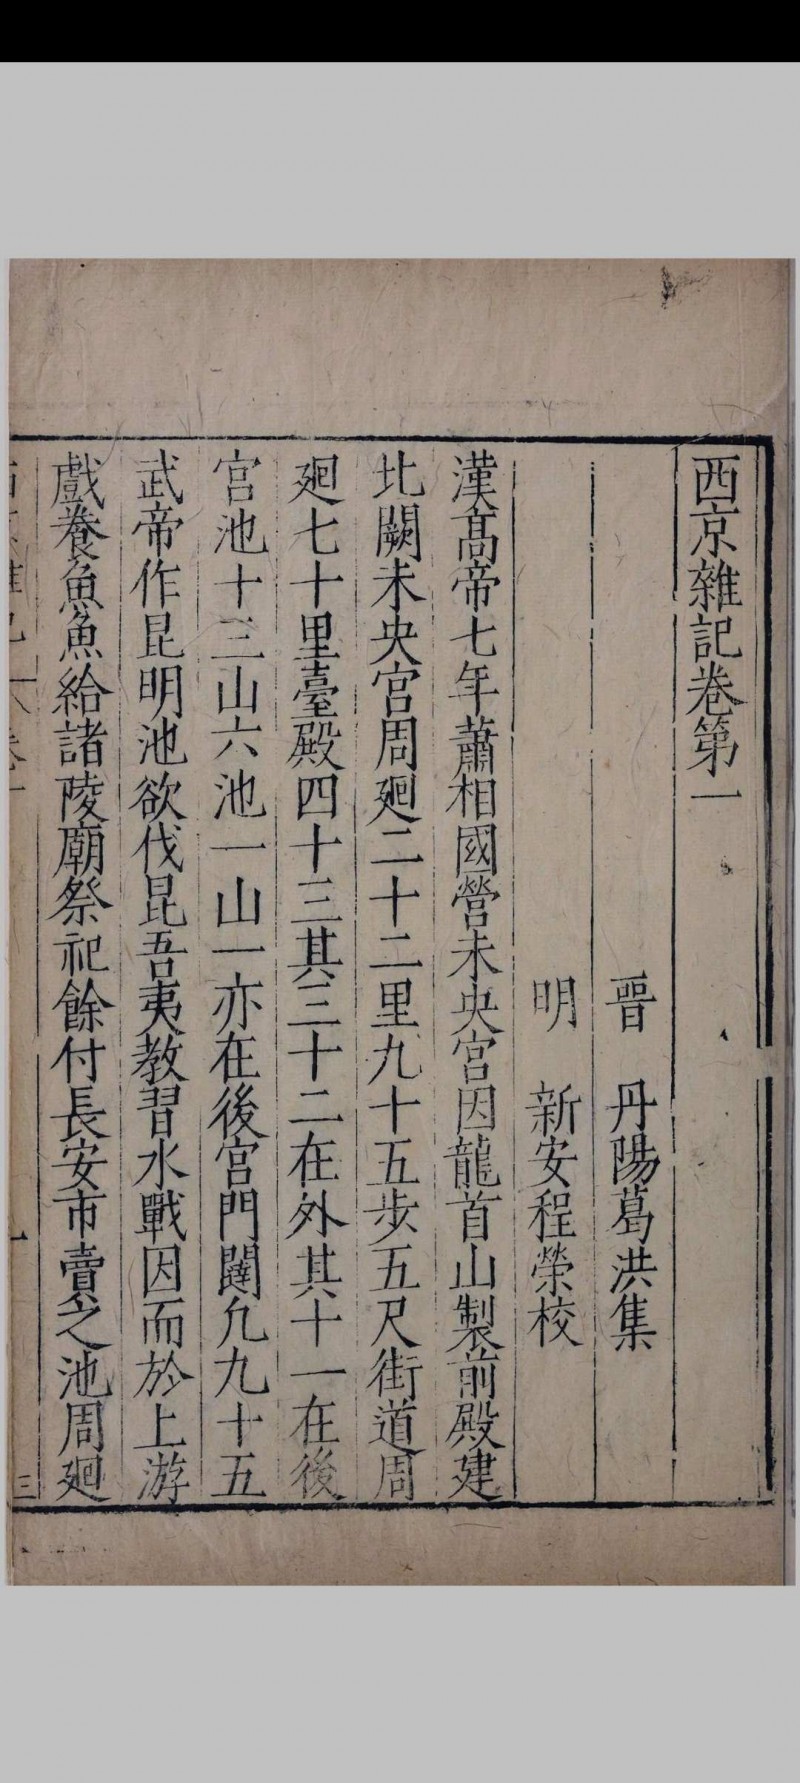 西京雜記卷第一
晉 丹陽葛洪集
明 新安程榮校
漢髙帝七年蕭相國營未央宮因龍首山製前殿建
北闕未央宮周廻二十二里九十五步五尺街道周
廻七十里臺殿四十三其三十二在外其十一在後
宮池十三山六池一山一亦在後宮門闥凡九十五
武帝作昆明池欲伐昆吾夷教習水戰因而於上游
戲養魚魚給諸陵廟祭祀餘付長安市賣之池周廻